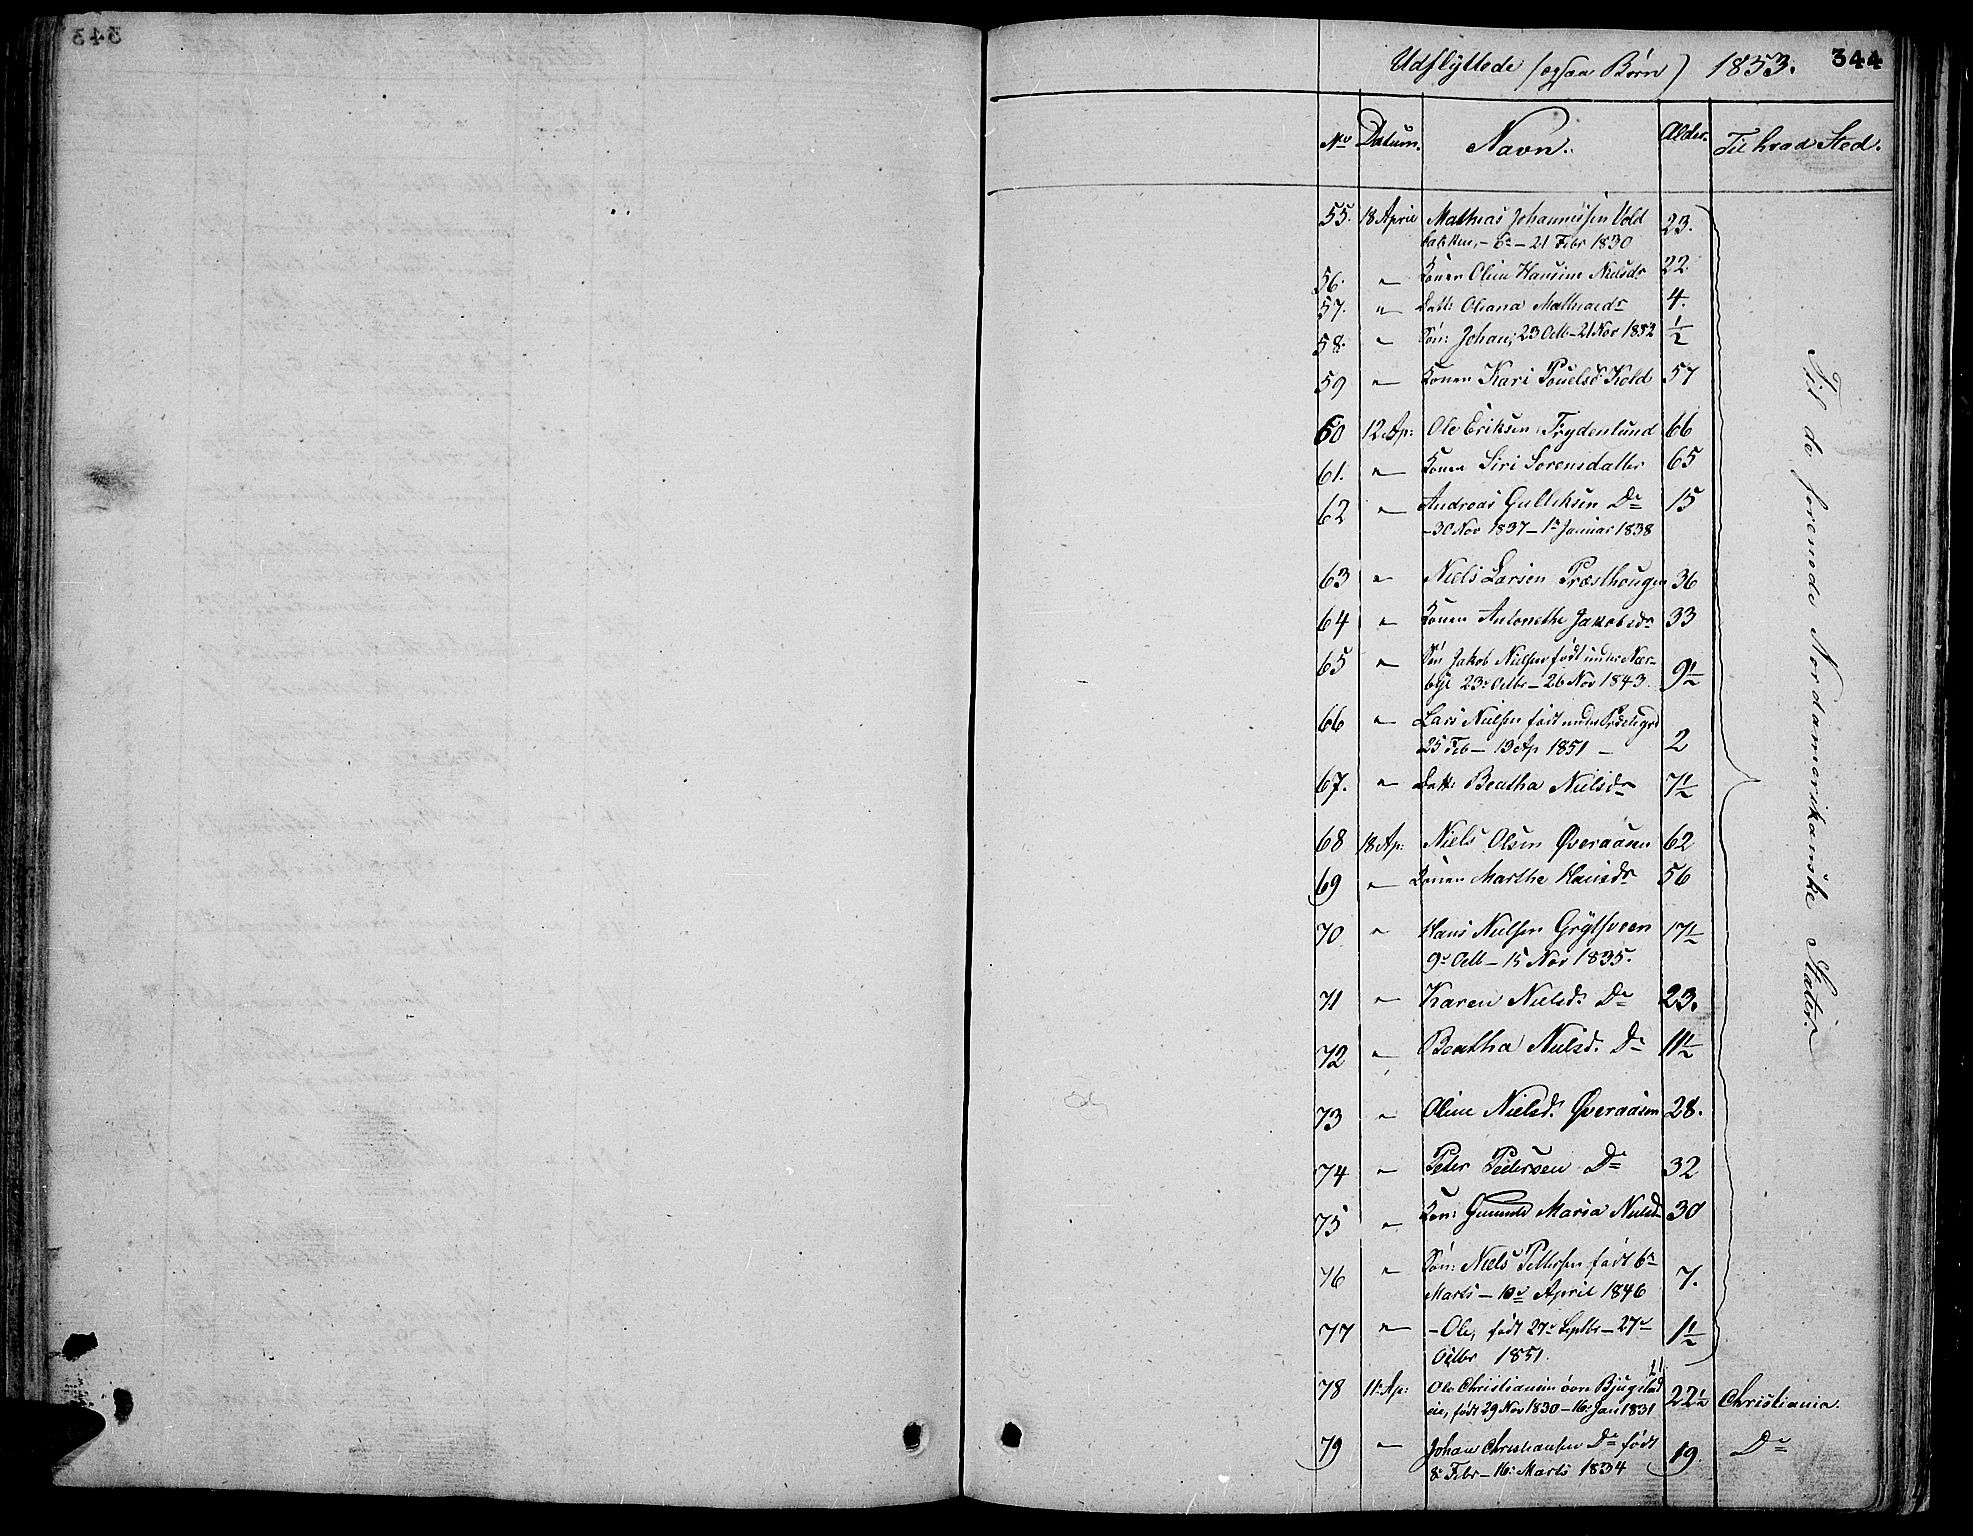 Udflyttede (ogsaa Børn) 1853. 344
No Datum. Navn. Alder. Til hvad Sted.
55. 18 April Mathias Johannesen Vold 23.
bakken, - 6te - 21 Febr 1830
56. " Konen Oline Hansine Nielsdr 22
57. " Datt: Oliana Mathiasdr 4.
58. " Søn: Johan, 23 Octb - 21 Nov 1852 1/2
59 " Konen Kari Pouelsd: Kold 57
60 12 Ap: Ole Eriksen Frydenlund 66
61. " Konen Siri Sorensdatter 65
62 " Andreas Gulliksen Do 15
- 30 Nov 1837 - 1e Januar 1838
63 " Niels Larsen Præsthougen 36
64 " Konen Antonethe Jakobsdr 33
65 " Søn Jakob Nielsen født under Nær-
bye 23e Octbr - 26 Nov 1843. 9 1/2
66 " Lars Nielsen født under
25 Feb - 13 Ap 1851 - 2
67. " Datt: Beatha Nielsdr 7 1/2
68 18 Ap: Niels Olsen Øveraasen 62
69 " Konen Marthe Hansdr 56
70 " Hans Nielsen Grytsveen 17 1/2
9e Octb - 15 Nov 1835.
71 " Karen Nielsd. Do 23.
72 " Beatha Nielsd. Do 11 1/2
73 " Oline Nielsd. Øveraasen 28.
74 " Peter Pedersen Do 32
75 " Kon: Gunnild Maria Nielsd 30
76 " Søn: Niels Pettersen født 6te
Marts - 10e April 1846 7.
77 " - Ole, født 27e Septbr - 27e
Octbr 1851. 1 1/2
Til de forenede Nordamerikanske Stater.
78 11 Ap: Ole Christiansen øvre Bjugstad
eie, født 29 Nov 1830 - 16 Jan 1831 22 1/2 Christiania.
79 " Johan Christiansen Do født
8 Febr - 16 Marts 1834 19. Do